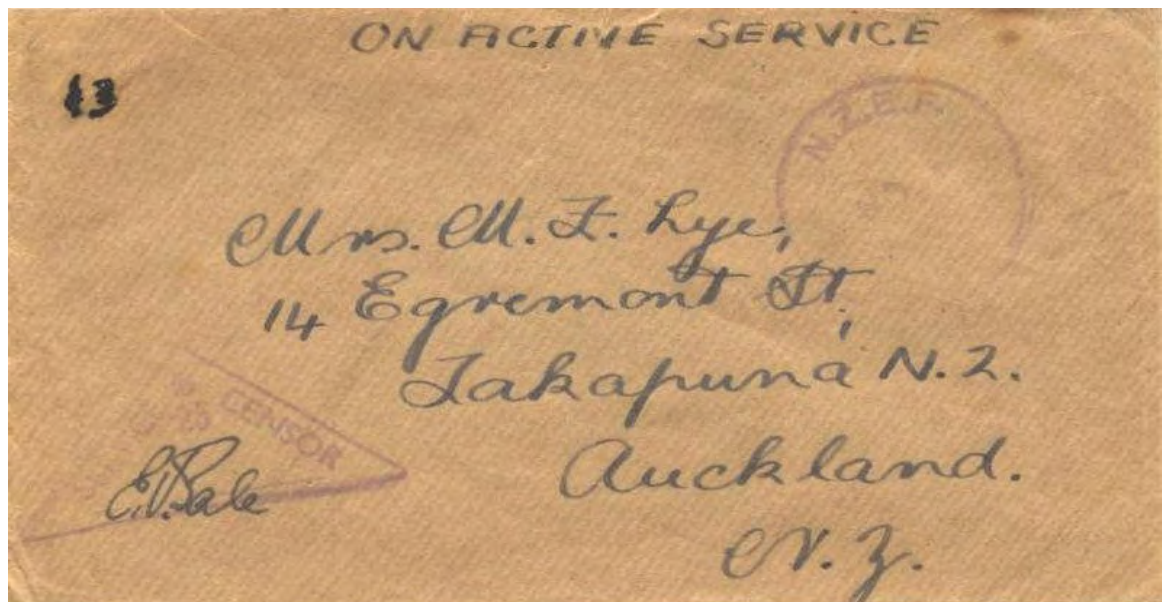 ON ACTIVE SERVICE
13
N.Z.E.F.
Mrs. M. F. Lye,
14 Egremont St,
Takapuna N.Z.
Auckland.
N.Z.
CENSOR